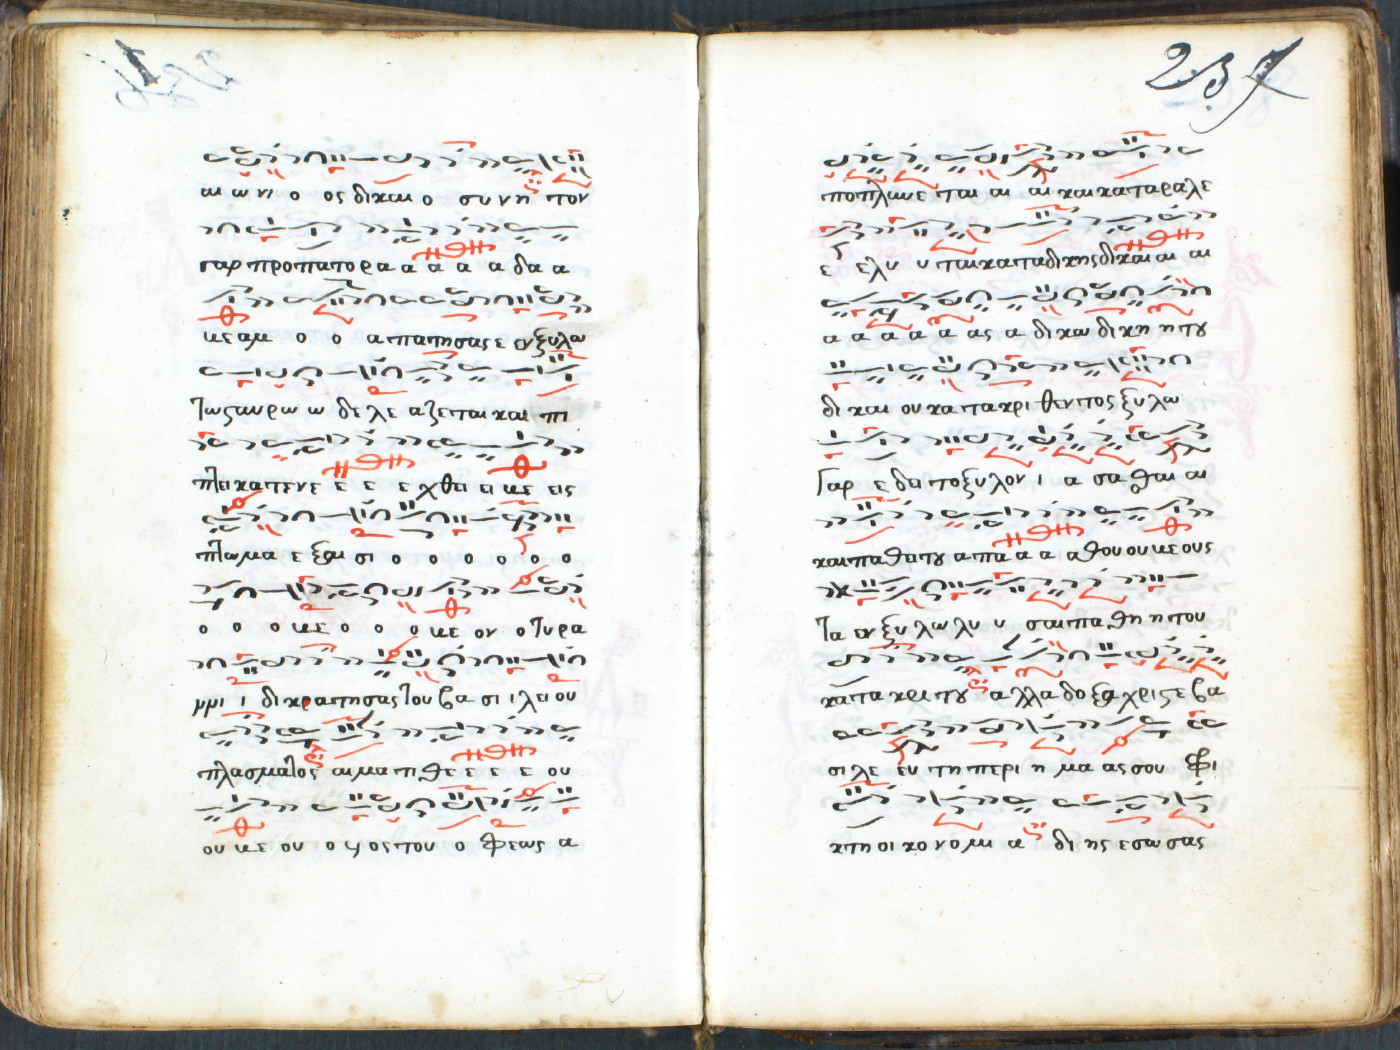 αι ω νι ο ος δι και ο συ νη τον
γαρ προπατορα α α α α δα α
με αμ ο ο απατησας ε εν ξυλω
τω σταυρω ω δε λε αζεται και πι
πτει κατενε ε ε ε χθει ει με εις
πτωμα ε ξαι σι ο ο ο ο ο ο
ο ο ο με ο ο ο με ον ο τυρα
μμι ι δι κρατησας του βα σι ι λει ου
πλασματος αιματι θε ε ε ε ου
ου με ου ο φος του ο φεως α
237
ποπλυνε ται αι αι και καταρα λε
ε ελυ υ ται καταδικης δικαι αι αι
α α α α α ας α δι κω δι κη η του
δι και ου κατακρι θεντος ξυλω
γαρ ε δει το ξυλον ι α σα θαι αι
και παθει του α πα α α αθου ου με ους
τα εν ξυ λω λυ υ σαι πα θη η του
κατα κρι του αλλα δοξα χριστε βα
σι λε ευ τη περι η μα ας σου φι
κτη οικονομι α δι ης εσωσας